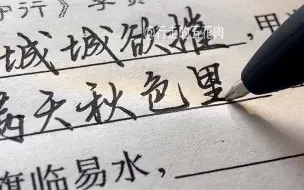 行》李
城城欲摧，甲
满天秋色里
旗临易水，